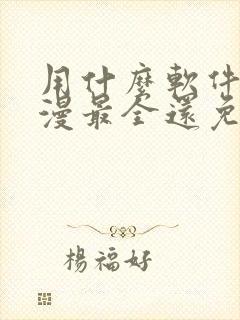 用什麼軟件
漫最全還免
楊福好